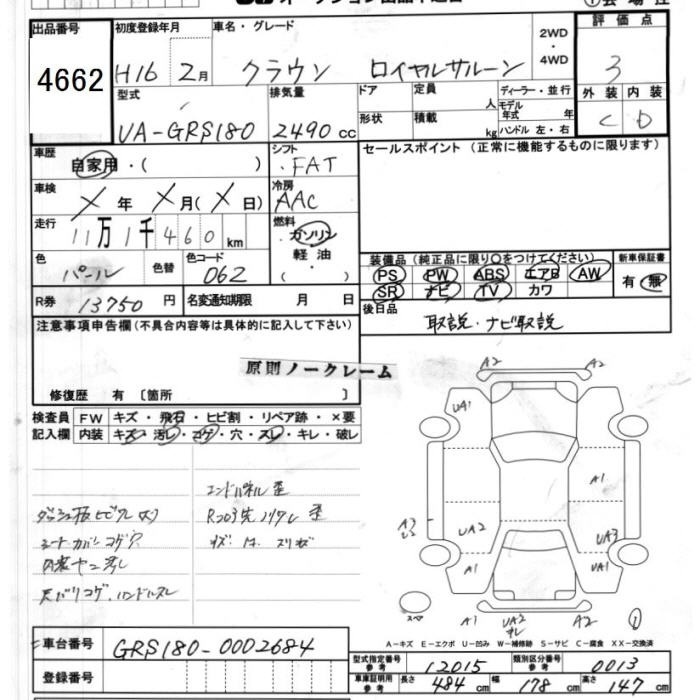 出品番号 初度登録年月 車名・グレード 2WD・4WD 評価点
4662 H16 2月 クラウン ロイヤルサルーン 3
型式 排気量 ドア 定員 人 ディーラー・並行 外装 内装
UA-GRS180 2490cc 形状 積載 kg モデル年式 年 ハンドル 左・右 C D
車歴 自家用・( ) シフト FAT セールスポイント(正常に機能するものに限ります)
車検 X年 X月(X日) 冷房 AAC
走行 11万1千460km 燃料 ガソリン 軽油・( )
色 パール 色替 色コード 062
装備品(純正品に限り○をつけてください) 新車保証書
PS PW ABS エアB AW 有・無
SR ナビ TV カワ
R券 13750円 名変通知期限 月 日
後日品 取説・ナビ取説
注意事項申告欄(不具合内容等は具体的に記入して下さい)
原則ノークレーム
修復歴 有〔箇所 〕
検査員 FW キズ・飛石・ヒビ割・リペア跡・×要
記入欄 内装 キズ・汚レ・コゲ・穴・スレ・キレ・破レ
エンドパネル歪
ダッシュ板ヒビワレ
シートカバーコゲ穴
内装ヤニ汚レ
天バリコゲ、ハンドルスレ
A2 A2
UA1
A1
UA2 UA3
A1 UA1
スペア
A1 UA2 A2
①
A-キズ E-エクボ U-凹み W-補修跡 S-サビ C-腐食 XX-交換済
車台番号 GRS180-0002684
登録番号
型式指定番号 参考 12015 類別区分番号 参考 0013
車庫証明用 参考 長さ 484cm 幅 178cm 高さ 147cm